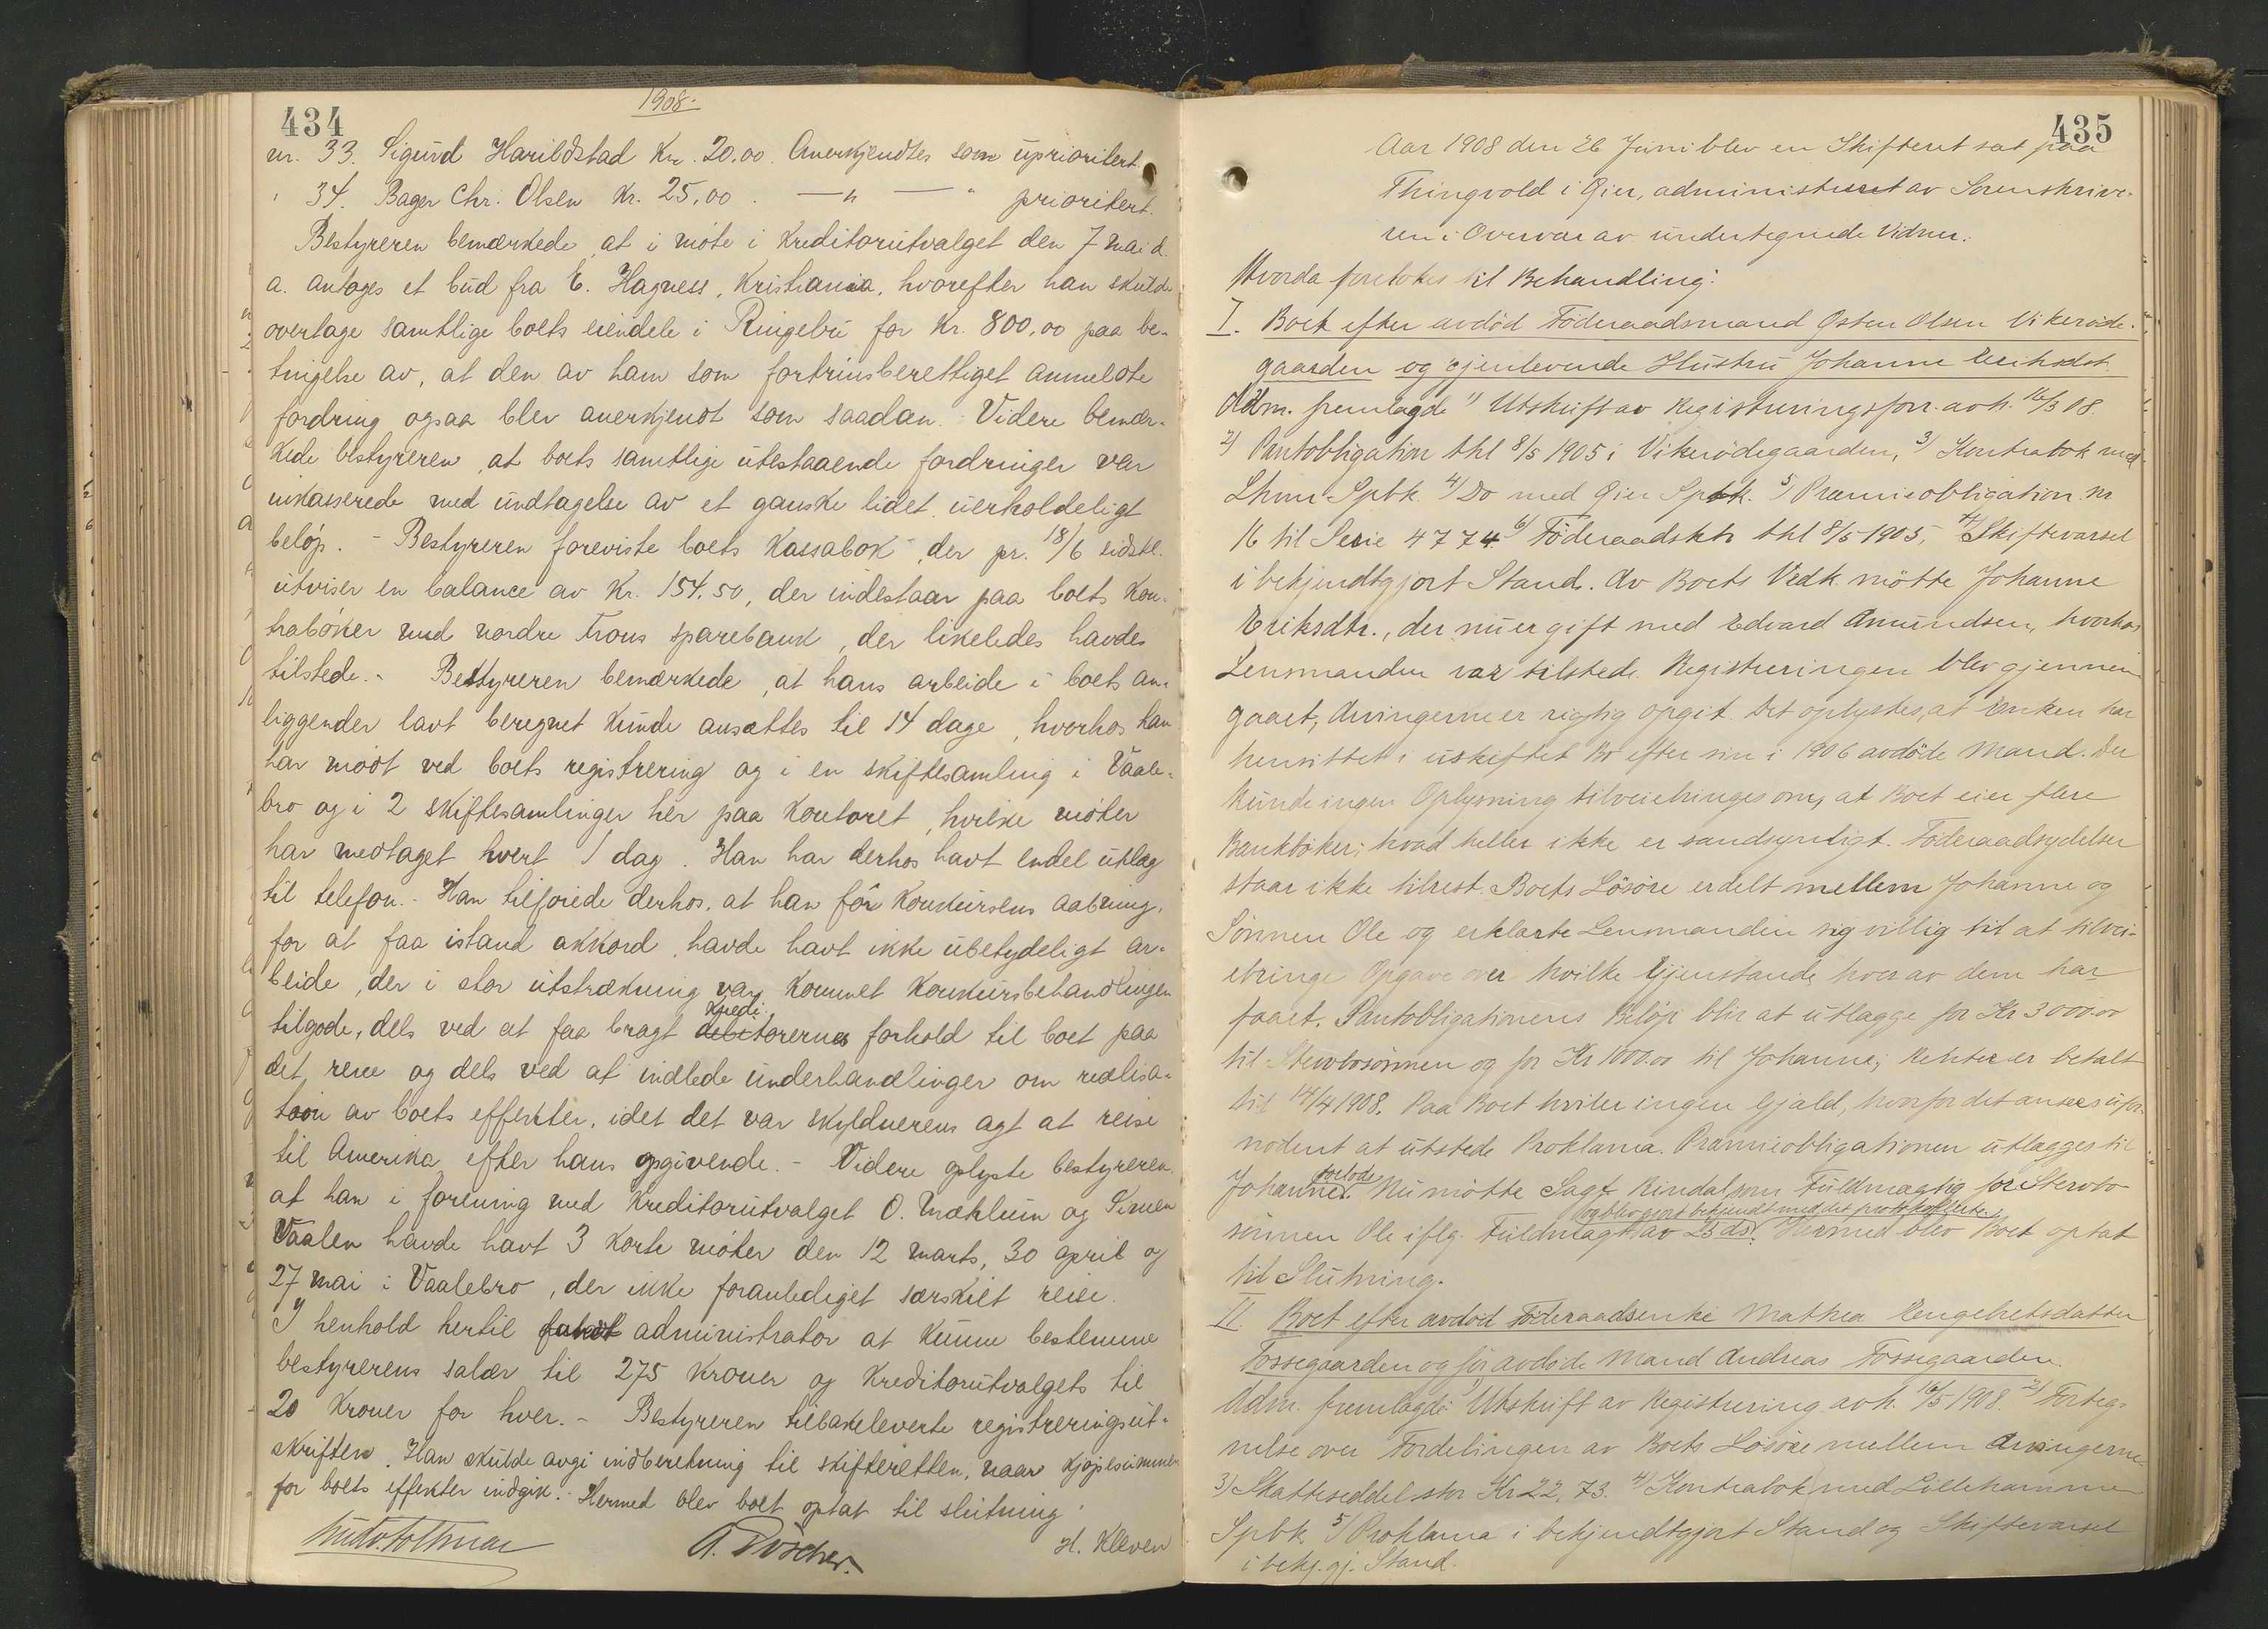 434
1908.
nr. 33. Sigurd Harildstad Kr. 20.00. Anerkjendtes som uprioritert
" 34. Bager Chr. Olsen Kr. 25.00. — " — " prioritert.
Bestyreren bemærkede, at i møte i Kreditorutvalget den 7 mai d.
a. antoges et bud fra E. Hagness, Kristiania, hvorefter han skulde
overtage samtlige boets eiendele i Ringebu for Kr. 800,00 paa be-
tingelse av, at den av ham som fortrinsberettiget anmeldte
fordring ogsaa blev anerkjendt som saadan. Videre bemær-
kede bestyreren, at boets samtlige utestaaende fordringer var
inkasserede med undtagelse av et ganske lidet uerholdeligt
beløp. - Bestyreren foreviste boets Kassabok, der pr. 18/6 sidstl.
utviser en balance av Kr. 154.50, der indestaar paa boets Kon-
trabøker med nordre Frons sparebank, der likeledes havdes
tilstede. - Bestyreren bemærkede, at hans arbeide i boets an-
liggender lavt beregnet kunde ansættes til 14 dage, hvorhos han
har mødt ved boets registrering og i en skiftesamling i Vaale-
bro og i 2 skiftesamlinger her paa Kontoret, hvilke møter
har medtaget hvert 1 dag. Han har derhos havt endel utlæg
til telefon. - Han tilføiede derhos, at han før Konkursens aabning,
for at faa istand akkord, havde havt ikke ubetydeligt ar-
beide, der i stor utstrækning var kommet Konkursbehandlingen
Kredi-
tilgode, dels ved at faa bragt debitorernes forhold til boet paa
det rene og dels ved at indlede underhandlinger om realisa-
tion av boets effekter, idet det var skyldnerens agt at reise
til Amerika efter hans opgivende. - Videre oplyste bestyreren
at han i forening med Kreditorutvalget O. Mæhlum og Simen
Vaalen havde havt 3 korte møter den 12 marts, 30 april og
27 mai i Vaalebro, der ikke foranlediget særskilt reise.
I henhold hertil fandt administrator at kunne bestemme
bestyrerens salær til 275 Kroner og Kreditorutvalgets til
20 Kroner for hver. - Bestyreren tilbakeleverte registreringsut-
skriften. Han skulde avgi indberetning til skifteretten, naar kjøpesummen
for boets effekter indgik. - Hermed blev boet optat til slutning.
A. Pöscher.
H. Kleven
435
Aar 1908 den 26 Juni blev en Skifteret sat paa
Thingvold i Øier, administreret av Sorenskrive-
ren i Overvær av undertegnede Vidner.
Hvorda foretokes til Behandling:
I. Boet efter avdød Føderaadsmand Østen Olsen Vikerøde-
gaarden og gjenlevende Hustru Johanne Eriksdtr.
Adm. fremlagde 1) Utskrift av Registreringsforr. avh. 16/3 08.
2) Pantobligation thl 8/5 1905 i Vikerødegaarden, 3) Kontrabok med
Lhmr Spbk. 4) Do med Øier Spbk. 5) Præmieobligation nr
16 til Serie 4774. 6) Føderaadsktr thl 8/5 1905, 7) Skiftevarsel
i bekjendtgjort Stand. Av Boets Vedk. møtte Johanne
Eriksdtr., der nu er gift med Edvard Amundsen, hvorhos
Lensmanden var tilstede. Registreringen blev gjennem-
gaaet; Arvingerne er rigtig opgit. Det oplystes, at Enken har
hensittet i uskiftet Bo efter sin i 1906 avdøde Mand. Der
kunde ingen Oplysning tilveiebringes om, at Boet eier flere
Bankbøker; hvad heller ikke er sandsynligt. Føderaadsydelser
staar ikke tilrest. Boets Løsøre er delt mellem Johanne og
Sønnen Ole og erklærte Lensmanden sig villig til at tilvei-
ebringe Opgave over hvilke Gjenstande hver av dem har
faaet. Pantobligationens Beløp blir at utlægge for Kr 3000.00
til Stervbosønnen og for Kr 1000.00 til Johanne; Renter er betalt
til 14/4 1908. Paa Boet hviler ingen Gjæld, hvorfor det ansees ufor-
nødent at utstede Proklama. Præmieobligationen utlægges til
Johannes
Nu møtte Sagf. Rindal som Fuldmægtig for Stervbo-
og blev gjort bekjendt med det protokollerte.
sønnen Ole iflg. Fuldmagt av 25 ds. Hermed blev Boet optat
til Slutning.
II. Boet efter avdød Føderaadsenke Mathea Engebretsdatter
Fossegaarden og før avdøde Mand Andreas Fossegaarden.
Adm. fremlagde: 1) Utskrift av Registrering avh. 16/5 1908. 2) Forteg-
nelse over Fordelingen av Boets Løsøre mellem Arvingerne
3) Skatteseddel stor Kr 22,73. 4) Kontrabok med Lillehammer
Spbk. 5) Proklama i bekjendtgjort Stand og Skiftevarsel
i bekj.gj. Stand.